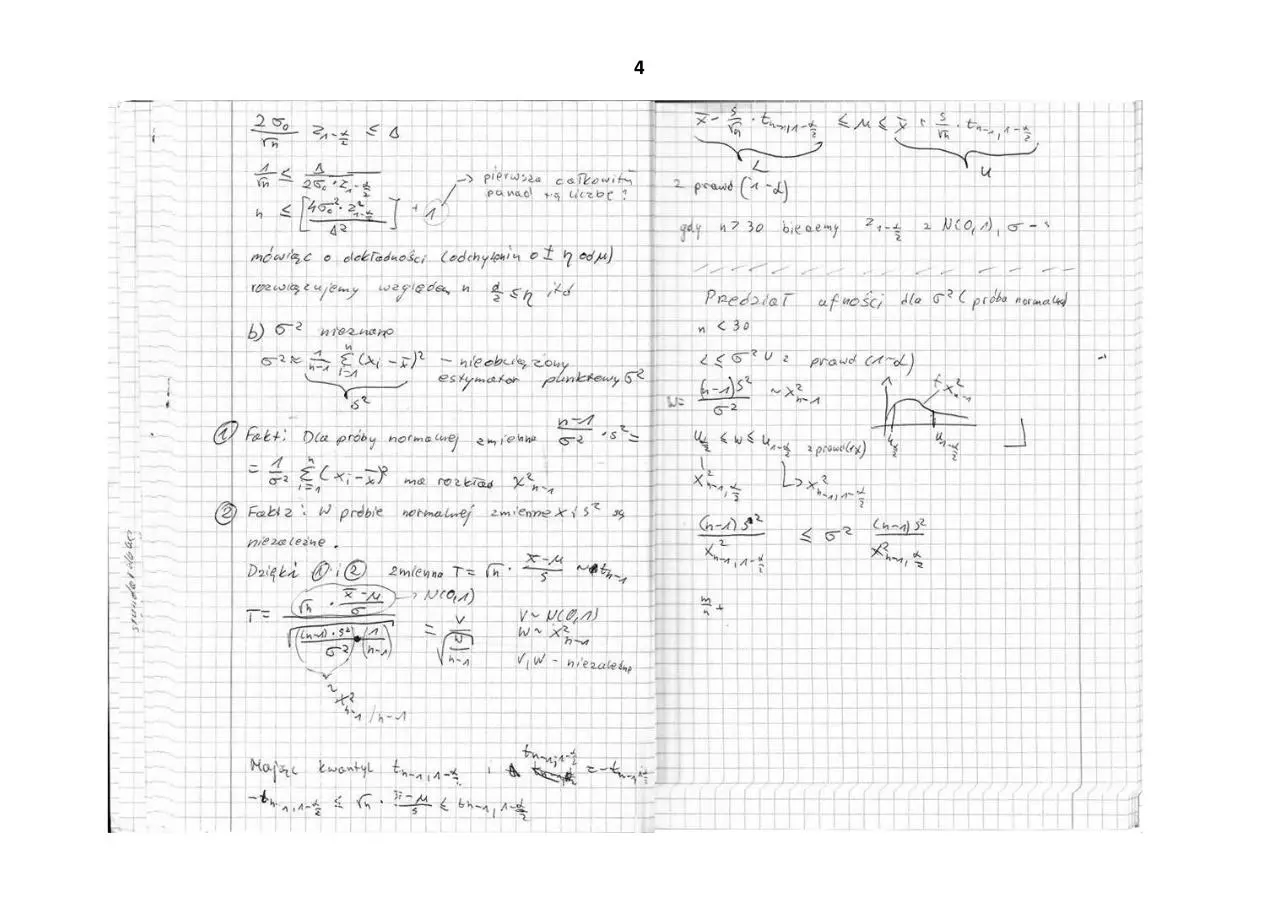 4
2σ₀/√n z_{1-α/2} ≤ Δ
1/√n ≤ Δ/(2σ₀·z_{1-α/2}) → pierwsza całkowita
n ≤ [4σ₀²·z²_{1-α/2}/Δ²] + 1 ponad tą liczbę?
mówiąc o dokładności (odchyleniu o ± η od μ)
rozwiązujemy względem n d/2 ≤ η itd
b) σ² nieznane
σ² ≈ 1/(n-1) Σ_{i=1}^{n} (x_i - x̄)² – nieobciążony
estymator punktowy σ²
S²
① Fakt: Dla próby normalnej zmienna (n-1)/σ² · s² =
= 1/σ² Σ_{i=1}^{n} (x_i - x̄)² ma rozkład χ²_{n-1}
② Fakt2: W próbie normalnej zmienne x̄ i s² są
niezależne.
Dzięki ① i ② zmienna T = √n · (x̄-μ)/s ~ t_{n-1}
T = (√n · (x̄-μ)/σ) / √((n-1)·s²/σ² · (1/(n-1))) = V/√(W/(n-1)) → N(0,1)
V ~ N(0,1)
W ~ χ²_{n-1}
V, W - niezależne
~ χ²_{n-1} / n-1
Mając kwantyl t_{n-1, 1-α/2} i t_{n-1, 1-α/2} = -t_{n-1, α/2}
-t_{n-1, 1-α/2} ≤ √n · (x̄-μ)/s ≤ t_{n-1, 1-α/2}
x̄ - s/√n · t_{n-1, 1-α/2} ≤ μ ≤ x̄ + s/√n · t_{n-1, 1-α/2}
L U
z prawd (1-α)
gdy n > 30 bierzemy z_{1-α/2} z N(0,1), σ – s
Przedział ufności dla σ² (próba normalna)
n < 30
L ≤ σ² U z prawd (1-α)
W = (n-1)S²/σ² ~ χ²_{n-1}
f χ²_{n-1}
u_{α/2} u_{1-α/2}
u_{α/2} ≤ W ≤ u_{1-α/2} z prawd (1-α)
χ²_{n-1, α/2} ↳ χ²_{n-1, 1-α/2}
(n-1)s²/χ²_{n-1, 1-α/2} ≤ σ² (n-1)s²/χ²_{n-1, α/2}
m/n +